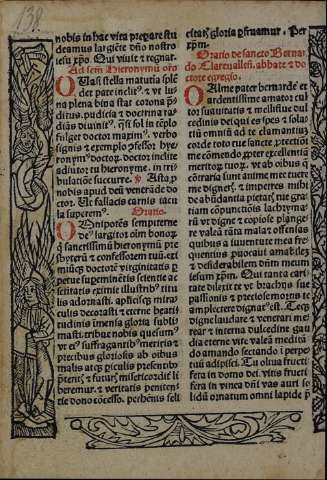 138.
nobis in hac vita prestare stu
deamus largiẽte dño nostro
iesu xp̃o. Qui vivit et regnat.
Ad sctm̃ Hieronymũ orõ
O Clas stella matutia splẽ
det pate inclit⁹. et ve lu
na plena bina stat corona põ
ditus. pudicia et doctrina ra
diãs divinit⁹. q̃si sol in tẽplo
fulget doctor maxim⁹. verbo
signis et exemplo p̃fessor hye
ronym⁹ doctor. doctor inclite
adiutor tu hieronyme. in tri
bulatiõe succurre.
nobis apud deũ venerãde do
ctor. Ut fallacis carnis iacu
la superem⁹. Oratio.
Omnipotẽs sempiterne
de⁹ largitor oĩm bonorũ
q̃ sanctissimũ hieronymũ pre
sbyterũ et confessorem tuũ exi
miũq̃ doctorẽ virginitatis p
petue supeminẽtis scientie ac
sctitatis eximie illustrib⁹ titu
lis adornasti. apl̃icisq̃ mira
culis decorasti et eterne beati
tudinis imẽsa gloria subli
masti. tribue nobis quesum⁹
vt ei⁹ suffragantib⁹ meritis et
precibus gloriosis ab oĩbus
malis atq̃ piculis presentib⁹
pteriti⁹ et futur̃ misericordit̃ li
beremur. et veritatis peniten
tie dono tõcesso. pehẽnis feli
citat̃ gloria p̃fruamur. Per
xp̃m.
Oratio de sancto Bernar
do Clarevallen̄. abbate et do
ctore egregio.
O Alme pater bernarde et
ardentissime amator cul
tor suavitatis et mellifluẽ dul
cedinis dei qui es spes et sola
tiũ omniũ ad te clamantiũ.
corde toto tue sancte p̃tectiõi
me cõmendo. p̃pter excellentiã
meritor̃ tuor̃. vt ab oĩbus q̃
cõtraria sunt anime mee tuere
me digner̃. et impetres mihi
de abũdantia pietat̃ tue gra
tiam cõpunctiõis lachryma
rũ vt digne et copiose plange
re valeã tãta mala et offensas
quibus a iuventute mea fre
quentius puocavi amabilẽ
et desiderabilem dũm meum
iesum xp̃m. Qui tanta cari
tate dilexit te vt brachijs sue
passionis et preciose mortis te
amplectere dignat⁹ est. Te q̃
digne laudare et venerari me
rear et interna dulcedine gau
dia eterne vite valeã medita
do amando secundo i perpe
tuũ adipisci. Tu oliva fructi
fera in domo dei. vitis fructi
fera in vinea dñi vas auri so
lidũ ornatum omni lapide p̃